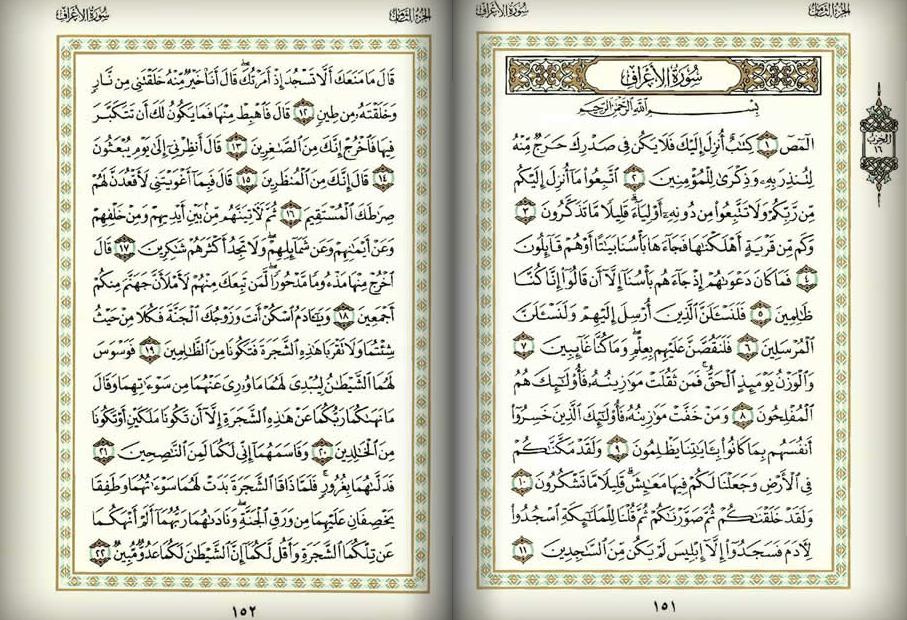 سُورَةُ الأَعْرَافِ
الجُزءُ الثَّامِنُ
سُورَةُ الأَعْرَافِ
بِسْمِ ٱللَّهِ ٱلرَّحْمَٰنِ ٱلرَّحِيمِ
الٓمٓصٓ ١ كِتَٰبٌ أُنزِلَ إِلَيْكَ فَلَا يَكُن فِى صَدْرِكَ حَرَجٌ مِّنْهُ
لِتُنذِرَ بِهِۦ وَذِكْرَىٰ لِلْمُؤْمِنِينَ ٢ ٱتَّبِعُوا۟ مَآ أُنزِلَ إِلَيْكُم
مِّن رَّبِّكُمْ وَلَا تَتَّبِعُوا۟ مِن دُونِهِۦٓ أَوْلِيَآءَ ۗ قَلِيلًا مَّا تَذَكَّرُونَ ٣
وَكَم مِّن قَرْيَةٍ أَهْلَكْنَٰهَا فَجَآءَهَا بَأْسُنَا بَيَٰتًا أَوْ هُمْ قَآئِلُونَ
٤ فَمَا كَانَ دَعْوَىٰهُمْ إِذْ جَآءَهُم بَأْسُنَآ إِلَّآ أَن قَالُوٓا۟ إِنَّا كُنَّا
ظَٰلِمِينَ ٥ فَلَنَسْـَٔلَنَّ ٱلَّذِينَ أُرْسِلَ إِلَيْهِمْ وَلَنَسْـَٔلَنَّ
ٱلْمُرْسَلِينَ ٦ فَلَنَقُصَّنَّ عَلَيْهِم بِعِلْمٍ ۖ وَمَا كُنَّا غَآئِبِينَ ٧
وَٱلْوَزْنُ يَوْمَئِذٍ ٱلْحَقُّ ۚ فَمَن ثَقُلَتْ مَوَٰزِينُهُۥ فَأُو۟لَٰٓئِكَ هُمُ
ٱلْمُفْلِحُونَ ٨ وَمَنْ خَفَّتْ مَوَٰزِينُهُۥ فَأُو۟لَٰٓئِكَ ٱلَّذِينَ خَسِرُوٓا۟
أَنفُسَهُم بِمَا كَانُوا۟ بِـَٔايَٰتِنَا يَظْلِمُونَ ٩ وَلَقَدْ مَكَّنَّٰكُمْ
فِى ٱلْأَرْضِ وَجَعَلْنَا لَكُمْ فِيهَا مَعَٰيِشَ ۗ قَلِيلًا مَّا تَشْكُرُونَ ١٠
وَلَقَدْ خَلَقْنَٰكُمْ ثُمَّ صَوَّرْنَٰكُمْ ثُمَّ قُلْنَا لِلْمَلَٰٓئِكَةِ ٱسْجُدُوا۟
لِـَٔادَمَ فَسَجَدُوٓا۟ إِلَّآ إِبْلِيسَ لَمْ يَكُن مِّنَ ٱلسَّٰجِدِينَ ١١
الحزب
١٦
١٥١
سُورَةُ الأَعْرَافِ
الجُزءُ الثَّامِنُ
قَالَ مَا مَنَعَكَ أَلَّا تَسْجُدَ إِذْ أَمَرْتُكَ ۖ قَالَ أَنَا۠ خَيْرٌ مِّنْهُ خَلَقْتَنِى مِن نَّارٍ
وَخَلَقْتَهُۥ مِن طِينٍ ١٢ قَالَ فَٱهْبِطْ مِنْهَا فَمَا يَكُونُ لَكَ أَن تَتَكَبَّرَ
فِيهَا فَٱخْرُجْ إِنَّكَ مِنَ ٱلصَّٰغِرِينَ ١٣ قَالَ أَنظِرْنِىٓ إِلَىٰ يَوْمِ يُبْعَثُونَ
١٤ قَالَ إِنَّكَ مِنَ ٱلْمُنظَرِينَ ١٥ قَالَ فَبِمَآ أَغْوَيْتَنِى لَأَقْعُدَنَّ لَهُمْ
صِرَٰطَكَ ٱلْمُسْتَقِيمَ ١٦ ثُمَّ لَـَٔاتِيَنَّهُم مِّنۢ بَيْنِ أَيْدِيهِمْ وَمِنْ خَلْفِهِمْ
وَعَنْ أَيْمَٰنِهِمْ وَعَن شَمَآئِلِهِمْ ۖ وَلَا تَجِدُ أَكْثَرَهُمْ شَٰكِرِينَ ١٧ قَالَ
ٱخْرُجْ مِنْهَا مَذْءُومًا مَّدْحُورًا ۖ لَّمَن تَبِعَكَ مِنْهُمْ لَأَمْلَأَنَّ جَهَنَّمَ مِنكُمْ
أَجْمَعِينَ ١٨ وَيَٰٓـَٔادَمُ ٱسْكُنْ أَنتَ وَزَوْجُكَ ٱلْجَنَّةَ فَكُلَا مِنْ حَيْثُ
شِئْتُمَا وَلَا تَقْرَبَا هَٰذِهِ ٱلشَّجَرَةَ فَتَكُونَا مِنَ ٱلظَّٰلِمِينَ ١٩ فَوَسْوَسَ
لَهُمَا ٱلشَّيْطَٰنُ لِيُبْدِىَ لَهُمَا مَا وُۥرِىَ عَنْهُمَا مِن سَوْءَٰتِهِمَا وَقَالَ
مَا نَهَىٰكُمَا رَبُّكُمَا عَنْ هَٰذِهِ ٱلشَّجَرَةِ إِلَّآ أَن تَكُونَا مَلَكَيْنِ أَوْ تَكُونَا
مِنَ ٱلْخَٰلِدِينَ ٢٠ وَقَاسَمَهُمَآ إِنِّى لَكُمَا لَمِنَ ٱلنَّٰصِحِينَ ٢١
فَدَلَّىٰهُمَا بِغُرُورٍ ۚ فَلَمَّا ذَاقَا ٱلشَّجَرَةَ بَدَتْ لَهُمَا سَوْءَٰتُهُمَا وَطَفِقَا
يَخْصِفَانِ عَلَيْهِمَا مِن وَرَقِ ٱلْجَنَّةِ ۖ وَنَادَىٰهُمَا رَبُّهُمَآ أَلَمْ أَنْهَكُمَا
عَن تِلْكُمَا ٱلشَّجَرَةِ وَأَقُل لَّكُمَآ إِنَّ ٱلشَّيْطَٰنَ لَكُمَا عَدُوٌّ مُّبِينٌ ٢٢
١٥٢